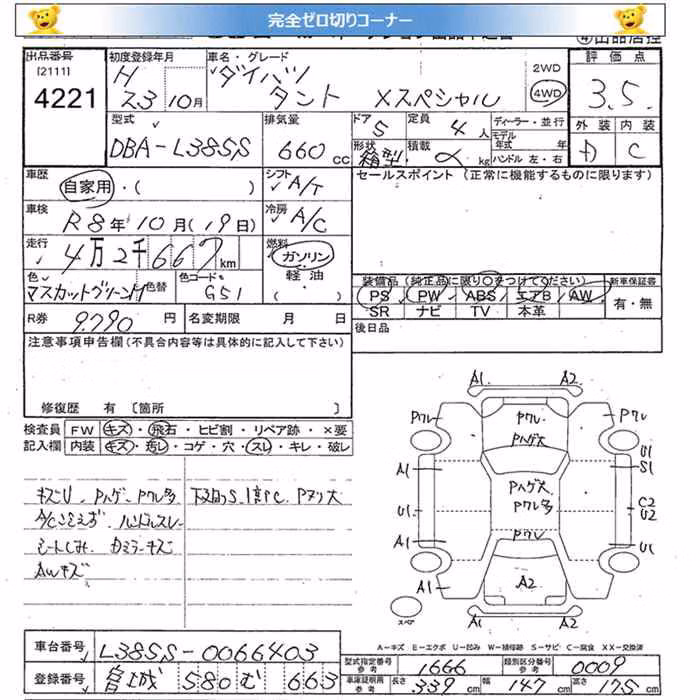 完全ゼロ切りコーナー
出品番号
[2111]
4221
初度登録年月
H 23 10月
車名・グレード
ダイハツ
タント Xスペシャル
2WD
4WD
評価点
3.5.
型式
DBA-L385S
排気量
660 cc
ドア 5
定員 4 人
ディーラー・並行
モデル年式 年
形状 箱型
積載 kg
ハンドル 左・右
外装
内装 C
車歴
自家用・( )
シフト A/T
セールスポイント (正常に機能するものに限ります)
車検
R8年10月(19日)
冷房 A/C
走行
4万2千667km
燃料
ガソリン
軽油
( )
色 マスカットグリーンM
色替
色コード G51
装備品 (純正品に限り○をつけてください)
新車保証書
PS PW ABS エアB AW
SR ナビ TV 本革
有・無
R券 9.790 円
名変期限 月 日
後日品
注意事項申告欄(不具合内容等は具体的に記入して下さい)
修復歴 有 [箇所 ]
検査員
記入欄
FW キズ・飛石・ヒビ割・リペア跡・×要
内装 キズ・汚レ・コゲ・穴・スレ・キレ・破レ
キズU. Pハゲ. Pクレ多
下廻りS. P ヌリ大
ハンドルスレ
シートしみ.
AWキズ
A1. A2
Pクレ
Pハゲ大
Pクレ
Pクレ
U1
S1
A1
Pハゲ大
Pクレ多
U1
C2
U2
A1
Pクレ
U1
A1
A2
A1
A2
スペア
A-キズ E-エクボ U-凹み W-補修跡 S-サビ C-腐食 XX-交換済
車台番号 L385S-0066403
登録番号 宮城 580 む 663
型式指定番号 参考 1666
類別区分番号 参考 0009
車庫証明用 参考 長さ 339 cm 幅 147 cm 高さ 175 cm